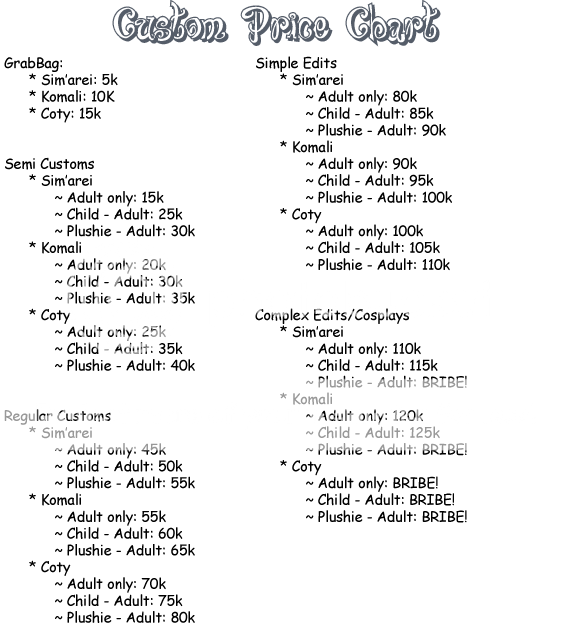 Custom Price Chart
GrabBag:
* Sim'arei: 5k
* Komali: 10K
* Coty: 15k
Semi Customs
* Sim'arei
~ Adult only: 15k
~ Child - Adult: 25k
~ Plushie - Adult: 30k
* Komali
~ Adult only: 20k
~ Child - Adult: 30k
~ Plushie - Adult: 35k
* Coty
~ Adult only: 25k
~ Child - Adult: 35k
~ Plushie - Adult: 40k
Regular Customs
* Sim'arei
~ Adult only: 45k
~ Child - Adult: 50k
~ Plushie - Adult: 55k
* Komali
~ Adult only: 55k
~ Child - Adult: 60k
~ Plushie - Adult: 65k
* Coty
~ Adult only: 70k
~ Child - Adult: 75k
~ Plushie - Adult: 80k
Simple Edits
* Sim'arei
~ Adult only: 80k
~ Child - Adult: 85k
~ Plushie - Adult: 90k
* Komali
~ Adult only: 90k
~ Child - Adult: 95k
~ Plushie - Adult: 100k
* Coty
~ Adult only: 100k
~ Child - Adult: 105k
~ Plushie - Adult: 110k
Complex Edits/Cosplays
* Sim'arei
~ Adult only: 110k
~ Child - Adult: 115k
~ Plushie - Adult: BRIBE!
* Komali
~ Adult only: 120k
~ Child - Adult: 125k
~ Plushie - Adult: BRIBE!
* Coty
~ Adult only: BRIBE!
~ Child - Adult: BRIBE!
~ Plushie - Adult: BRIBE!